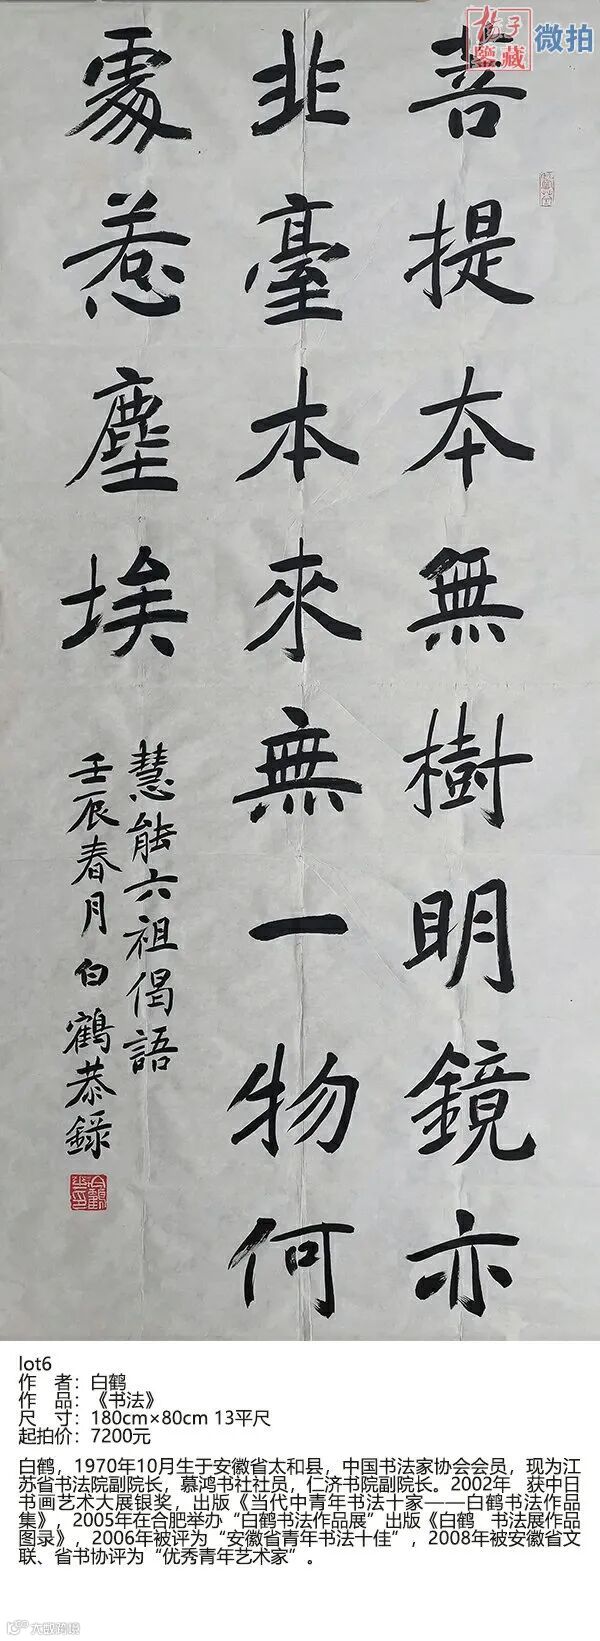 杨子
鉴藏
微拍
菩提本無樹明鏡亦
非臺本來無一物何
處惹塵埃
慧能六祖偈語
壬辰春月白鶴恭錄
lot6
作 者：白鹤
作 品：《书法》
尺 寸：180cm×80cm 13平尺
起拍价：7200元
白鹤，1970年10月生于安徽省太和县，中国书法家协会会员，现为江
苏省书法院副院长，慕鸿书社社员，仁济书院副院长。2002年 获中日
书画艺术大展银奖，出版《当代中青年书法十家——白鹤书法作品
集》，2005年在合肥举办“白鹤书法作品展”出版《白鹤 书法展作品
图录》，2006年被评为“安徽省青年书法十佳”，2008年被安徽省文
联、省书协评为“优秀青年艺术家”。
大威跨境